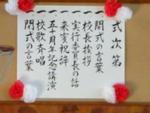 式次第
一、開式の言葉
一、校長挨拶
一、実行委員長の話
一、来賓祝辞
一、五十周年記念講演
一、校歌斉唱
一、閉式の言葉